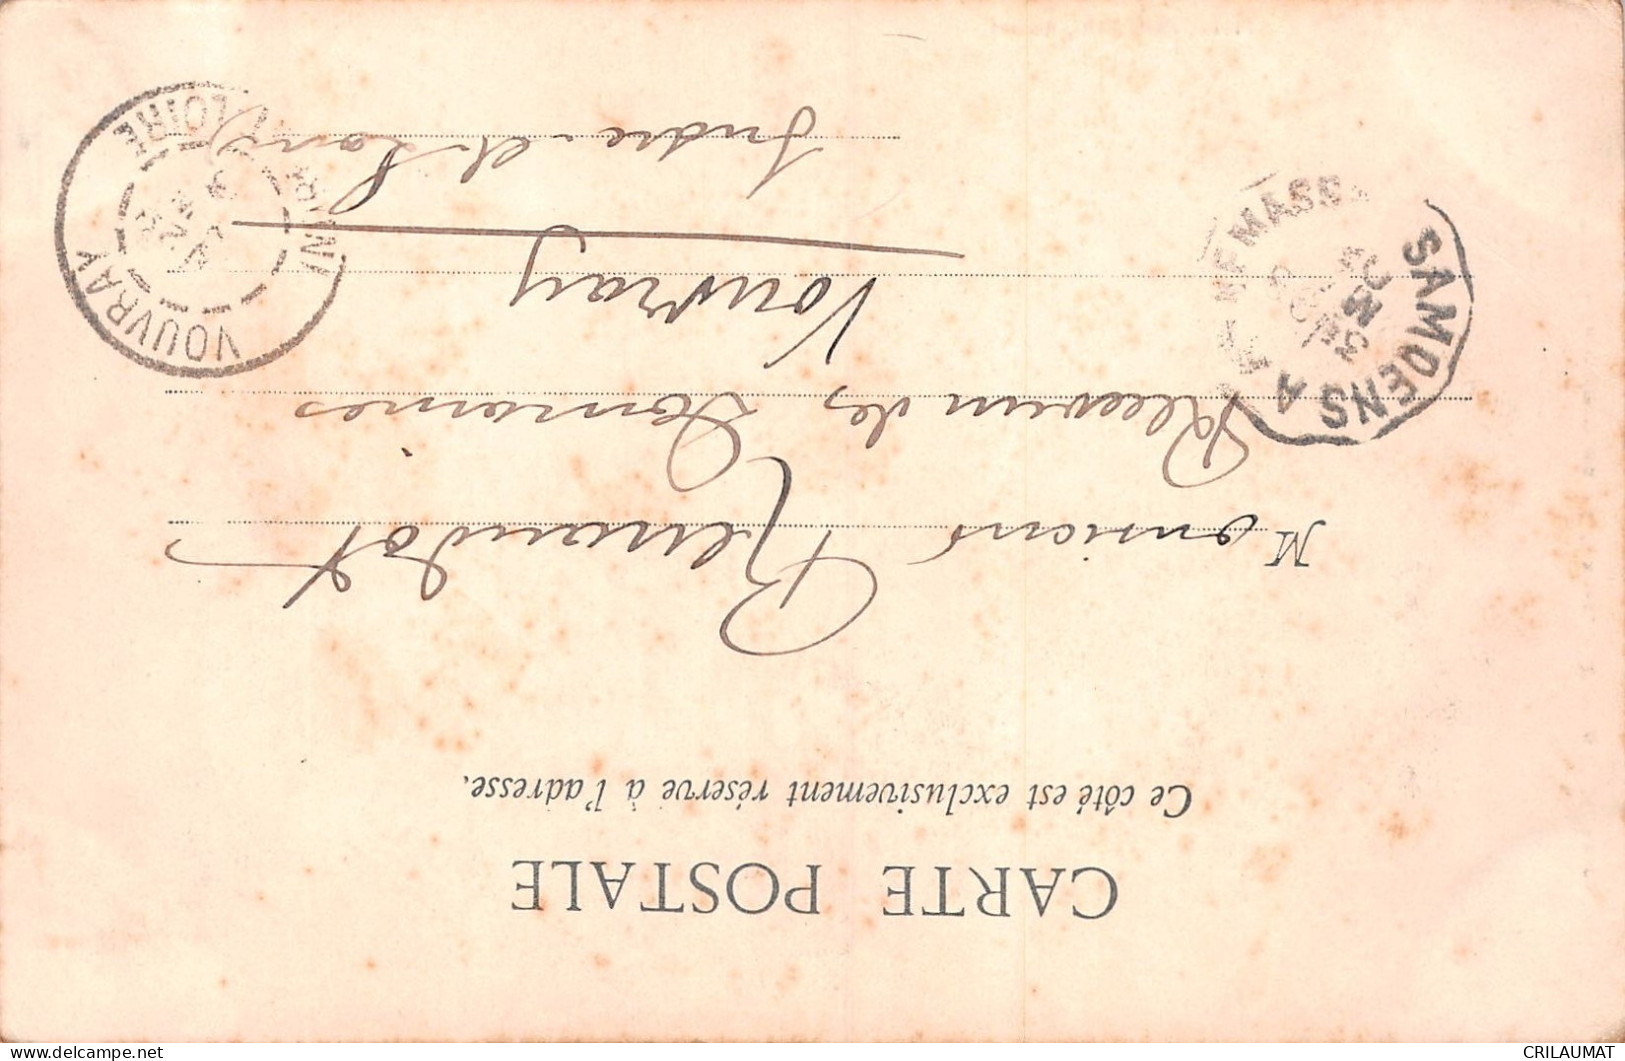 CARTE POSTALE
Ce côté est exclusivement réservé à l'adresse.
Monsieur Renaudot
Receveur des Domaines
Vouvray
Indre-et-Loire
SAMOENS A
VOUVRAY
INDRE LOIRE
CRILAUMAT